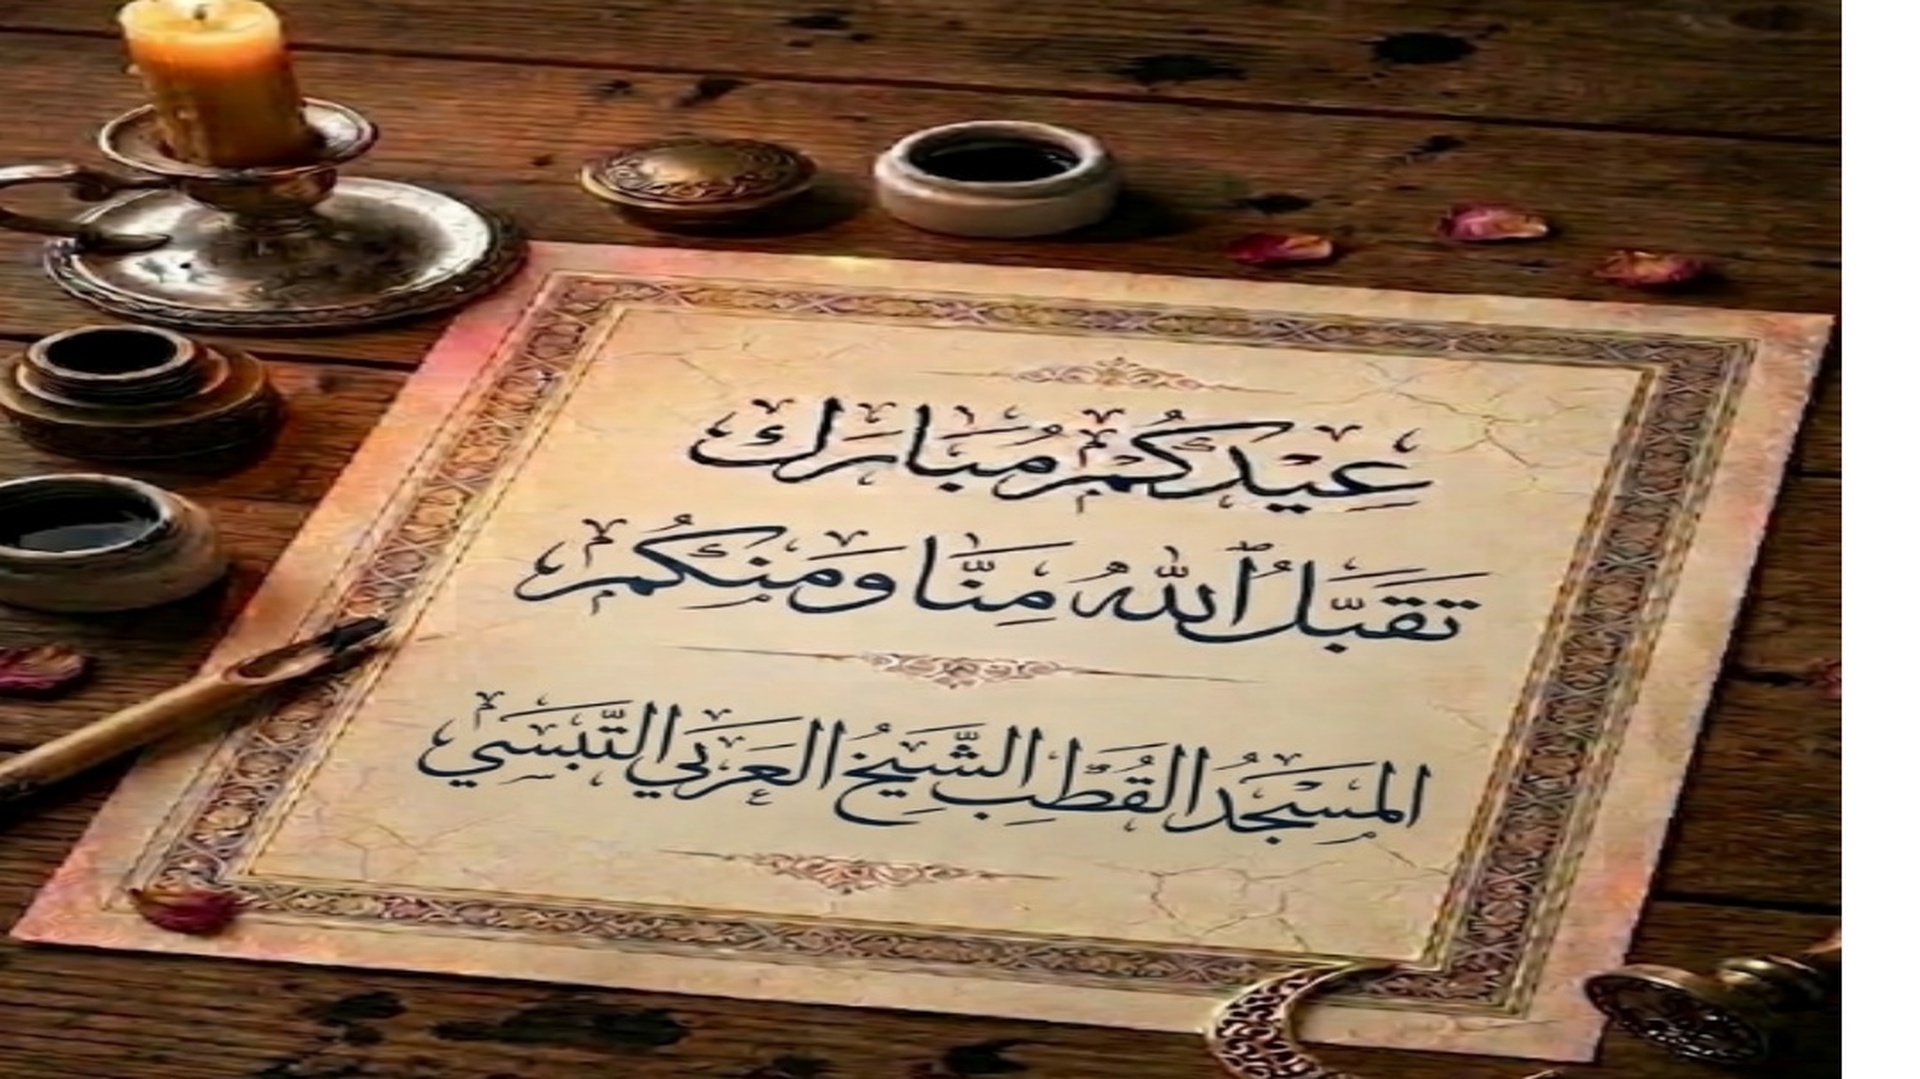 عِيْدكُمْ مُبَارَك
تَقَبَّلَ ٱللهُ مِنَّا وَمَنكُمْ
المسْجدُ القُطْبِ الشَّيخُ العَرَبي التَّبَسي